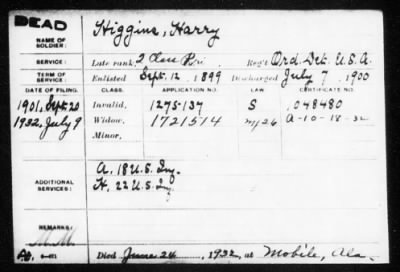 DEAD
NAME OF SOLDIER: Higgins, Harry
SERVICE: Late rank, 2 Class Pri Reg't Ord. Det. U.S.A.
TERM OF SERVICE: Enlisted Sept. 12, 1899 Discharged July 7, 1900
DATE OF FILING. CLASS. APPLICATION NO. LAW. CERTIFICATE NO.
1901, Sept. 20 Invalid, 1275-137 S .048480
1932, July 9 Widow, 1721514 A-10-18-32
Minor,
ADDITIONAL SERVICES: A. 18 U.S. Inf.
H. 22 U.S. Inf.
REMARKS:
Died June 24, 1932, at Mobile, Ala.